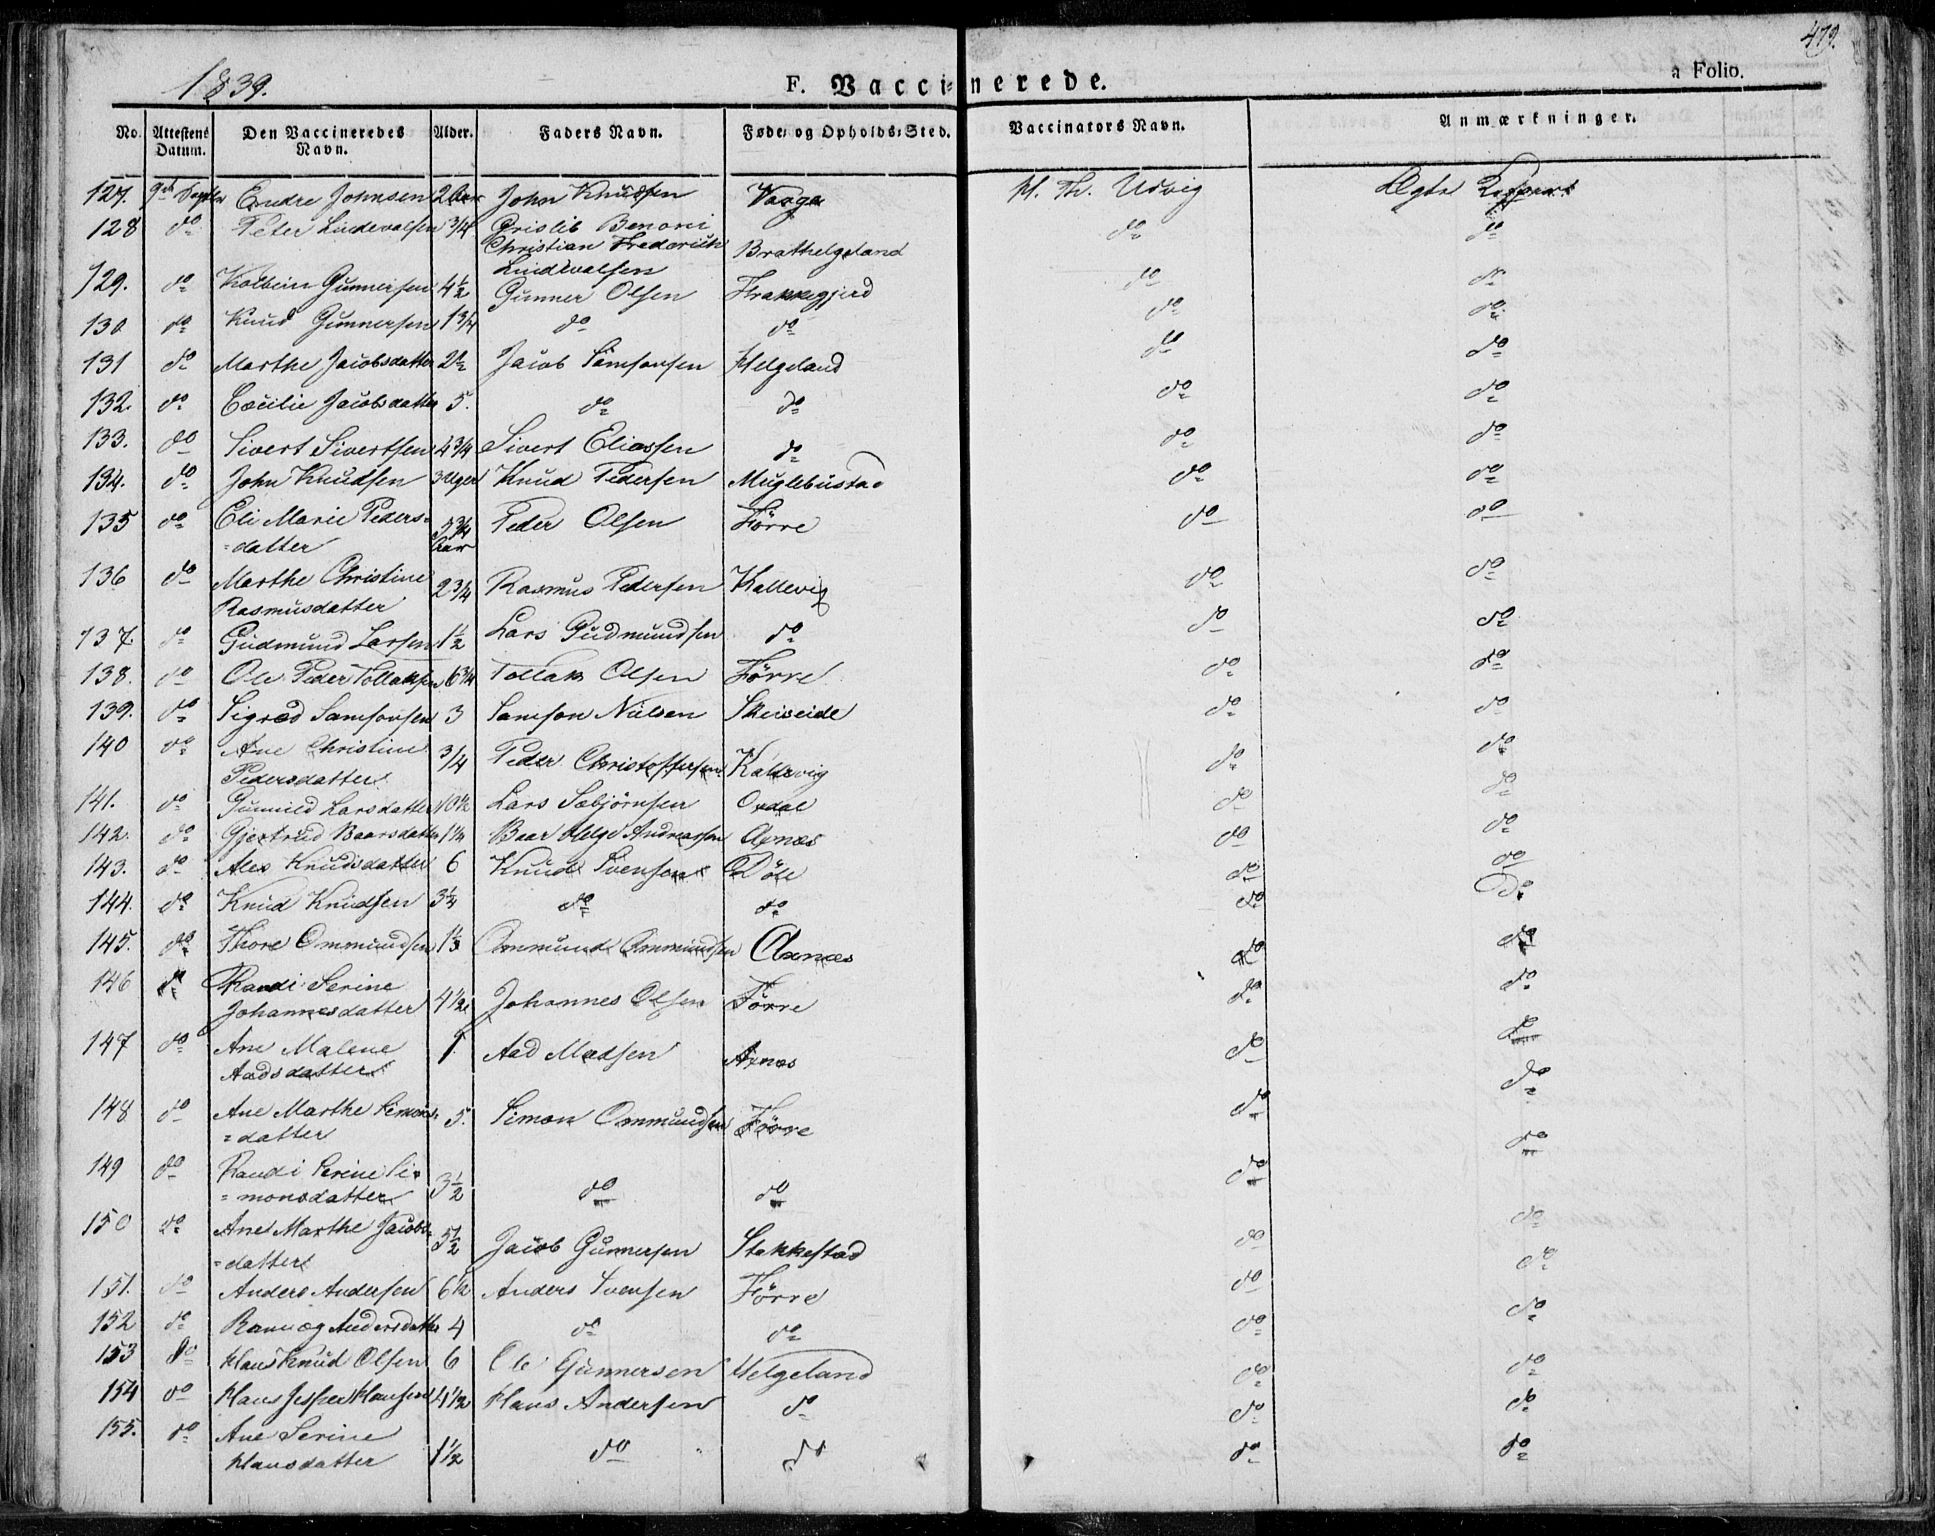 479.
1839.
F. Vaccinerede.
a Folio.
No. Attestens Datum. Den Vaccineredes Navn. Alder. Faders Navn. Føde- og Opholds-Sted. Vaccinators Navn. Anmærkninger.
127. 9de Endre Johnsen 2 Aar John Knudsen Vaage Th. Udvig Ægte
128 do Peter Lindevalsen 3/4 Benoni Christian Frederich Lindevalsen Brathelgeland do do
129. do Kolbein Gunnersen 4 1/2 Gunner Olsen Frakkegjerd do do
130 do Knud Gunnersen 1 3/4 do do do do
131 do Marthe Jacobsdatter 2 1/2 Jacob Samsonsen Helgeland do do
132. do Cæcilie Jacobsdatter 5. do do do do
133. do Sivert Sivertsen 4 3/4 Sivert Eliassen do do do
134. do John Knudsen 3 Uger Knud Pedersen Muglebustad do do
135 do Eli Marie Peders= =datter 5 3/4 Aar Peder Olsen Førre do do
136 do Marthe Christine Rasmusdatter 2 3/4 Rasmus Pedersen Kallevig do do
137. do Gudmund Larsen 1 1/2 Lars Gudmundsen do do do
138. do Ole Peder Tollaksen 6 3/4 Tollak Olsen Førre do do
139. do Sigred Samsonsen 3 Samson Nielsen Skeiseide do do
140 do Ane Christine Pedersdatter 3/4 Peder Christoffersen Kallevig do do
141. do Gunnild Larsdatter 10 1/2 Lars Sæbjørnsen do do
142. do Gjertrud Baarsdatter 1 1/4 Baar Helge Andreassen Axnæs do do
143. do Alex Knudsdatter 6 Knud Svensen Døle do do
144. do Knud Knudsen 3 1/4 do do do do
145. do Thore Ommundsen 1 1/3 Ommund Ommundsen Axnæs do do
146 do Randi Serine Johannesdatter 4 1/2 Johannes Olsen Førre do do
147 do Ane Malene Aadsdatter 1 Aad Madsen Axnæs do do
148 do Ane Marthe Simons= =datter 5. Simon Ommundsen Førre do do
149 do Randi Serine Si= =monsdatter 3 1/2 do do do do
150 do Ane Marthe Jacobs= =datter 5 1/2 Jacob Gunnersen Stakkestad do do
151. do Anders Andersen 6 1/2 Anders Svensen Førre do do
152 do Rannæg Andersdatter 4 do do do do
153 do Hans Knud Olsen 6 Ole Gunnersen Helgeland do do
154 do Hans Jesper Hansen 4 1/2 Hans Andersen do do do
155. do Ane Serine Hansdatter 1 1/2 do do do do